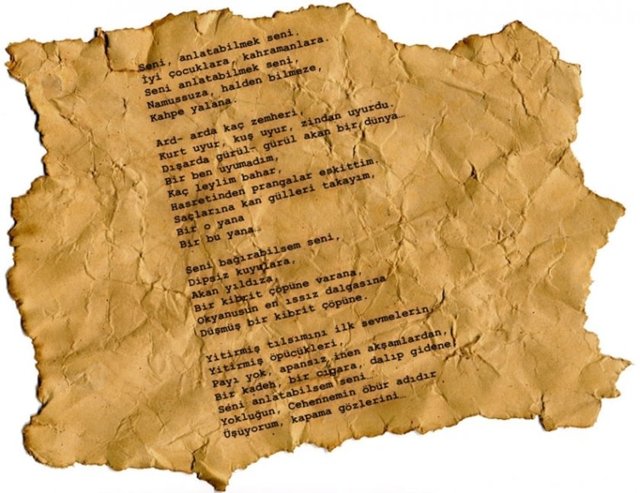 Seni, anlatabilmek seni.
İyi çocuklara, kahramanlara.
Seni anlatabilmek seni,
Namussuza, halden bilmeze,
Kahpe yalana.
Ard- arda kaç zemheri,
Kurt uyur, kuş uyur, zindan uyurdu.
Dışarda gürül- gürül akan bir dünya…
Bir ben uyumadım,
Kaç leylim bahar,
Hasretinden prangalar eskittim.
Saçlarına kan gülleri takayım,
Bir o yana
Bir bu yana…
Seni bağırabilsem seni,
Dipsiz kuyulara,
Akan yıldıza,
Bir kibrit çöpüne varana,
Okyanusun en ıssız dalgasına
Düşmüş bir kibrit çöpüne.
Yitirmiş tılsımını ilk sevmelerin,
Yitirmiş öpücükleri,
Payı yok, apansız inen akşamlardan,
Bir kadeh, bir cıgara, dalıp gidene,
Seni anlatabilsem seni…
Yokluğun, Cehennemin öbür adıdır
Üşüyorum, kapama gözlerini…